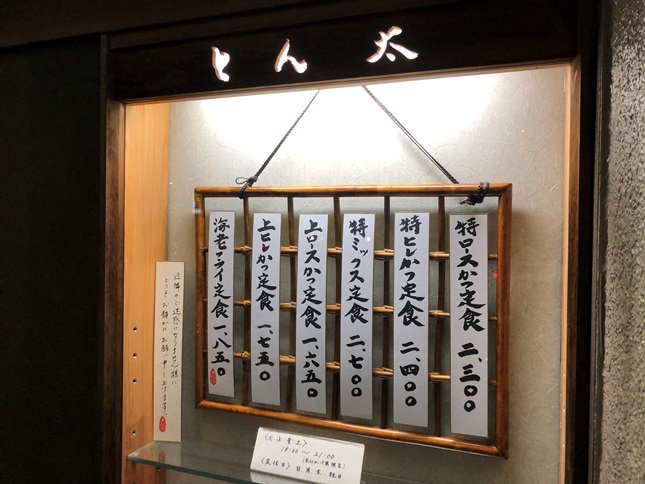 とん太
特ロースかつ定食 二、三〇〇
特ヒレかつ定食 二、四〇〇
特ミックス定食 二、七〇〇
上ロースかつ定食 一、六五〇
上ヒレかつ定食 一、七五〇
海老フライ定食 一、八五〇
近隣のご迷惑になりません様に
どうぞお静かにお願い申し上げます。
18:00〜21:00
〈定休日〉日.月.木.祝日